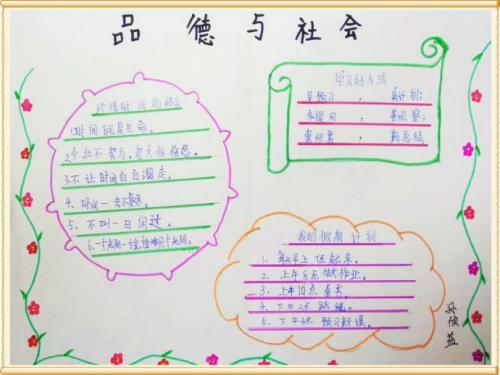 品德与社会
珍惜时间的格言
1.时间就是生命。
2.少壮不努力,老大徒伤悲。
3.不让时间白白溜走。
4、时间一去不复返。
5、不叫一日闲过。
6.一寸光阴一寸金,寸金难买寸光阴。
学习好方法
早预习,有计划;
多提问,善观察;
常复习,勤总结。
我的假期计划
1、每天早上7点起床。
2、上午8点做作业。
3、上午10点看书。
4、下午2点跳绳。
5、下午4点预习新课。